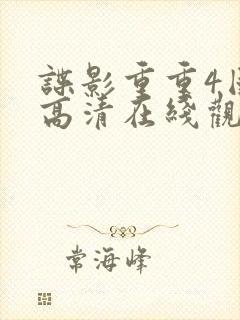 諜影重重4
高清在綫觀
常海峰